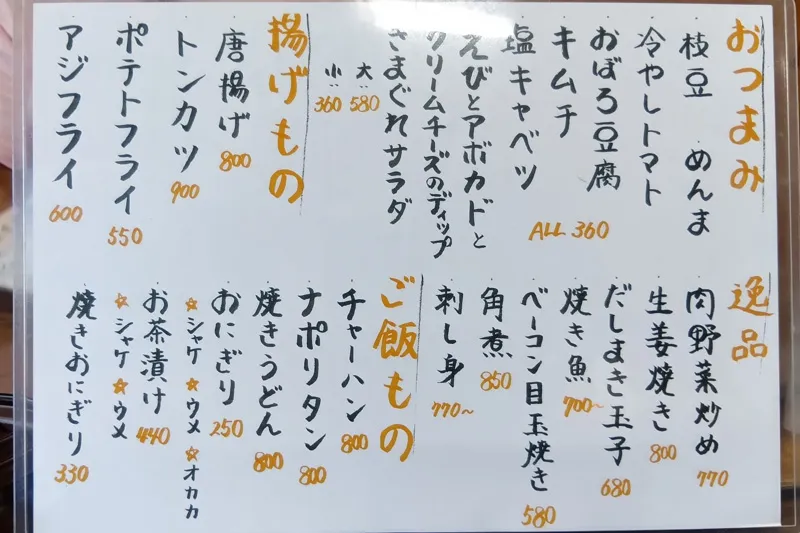 おつまみ
枝豆 めんま
冷やしトマト
おぼろ豆腐
キムチ
塩キャベツ
ALL 360
えびとアボカドと
クリームチーズのディップ
きまぐれサラダ
大:580
小:360
揚げもの
唐揚げ 800
トンカツ 900
ポテトフライ 550
アジフライ 600
逸品
肉野菜炒め 770
生姜焼き 800
だしまき玉子 680
焼き魚 700~
ベーコン目玉焼き 580
角煮 850
刺し身 770~
ご飯もの
チャーハン 800
ナポリタン 800
焼きうどん 800
おにぎり 250
☆シャケ ☆ウメ ☆オカカ
お茶漬け 440
☆シャケ ☆ウメ
焼きおにぎり 330